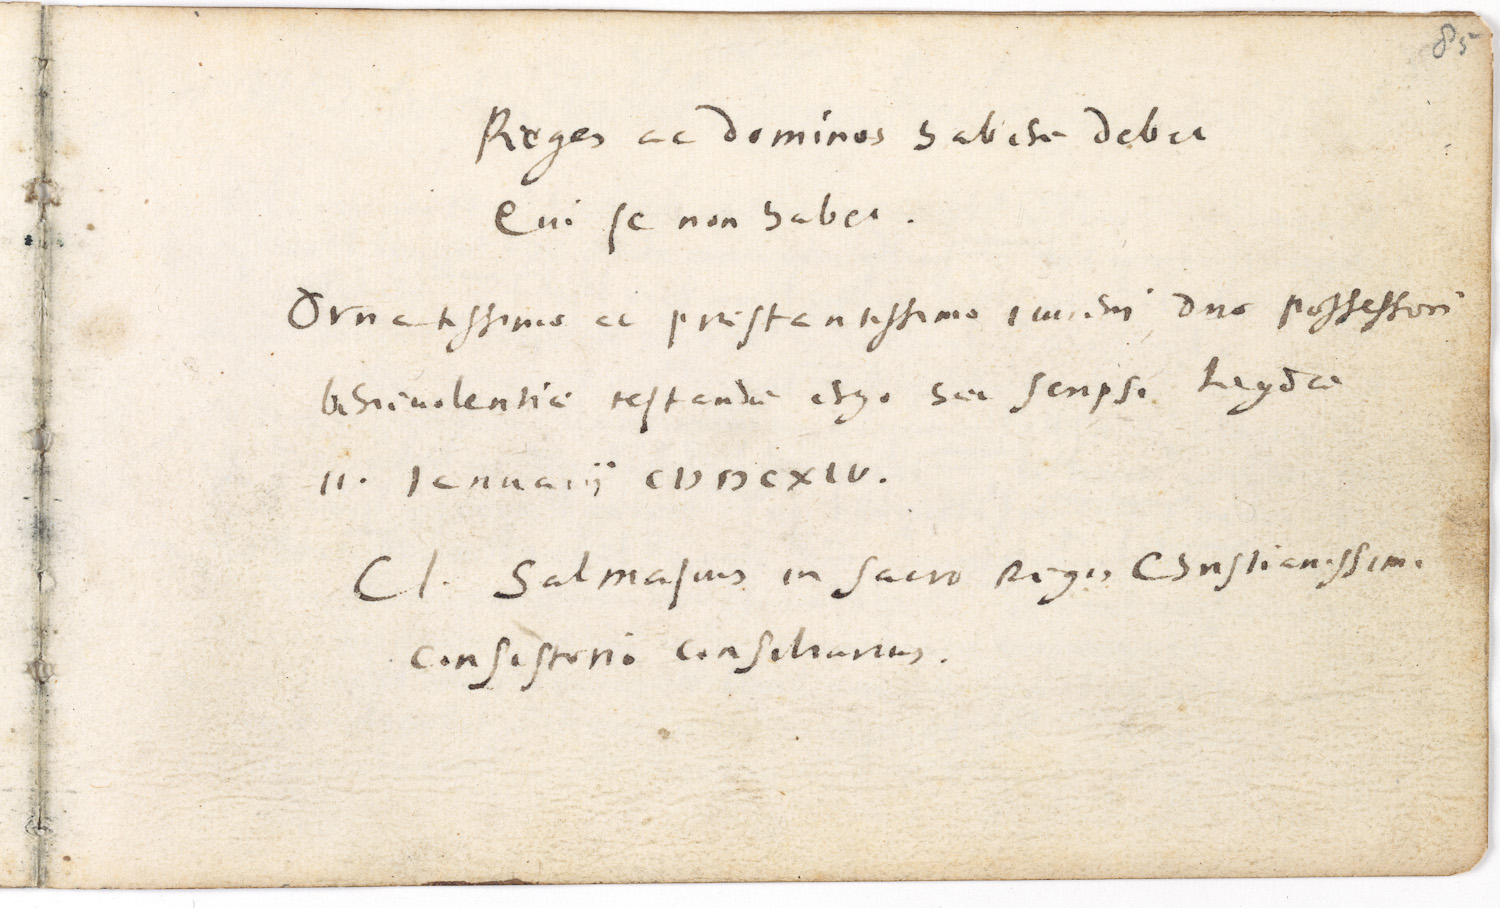 85
Reges ac dominos habere debet
Qui se non habet.
Ornatissimo ac prestantissimo iuveni dno possessori
benevolentiæ testandæ ergo hæc scripsi Leydæ
11. Ianuarij CIↃ IↃCXLV.
Cl. Salmasius in sacro Regis Christianissimi
consistorio consiliarius.